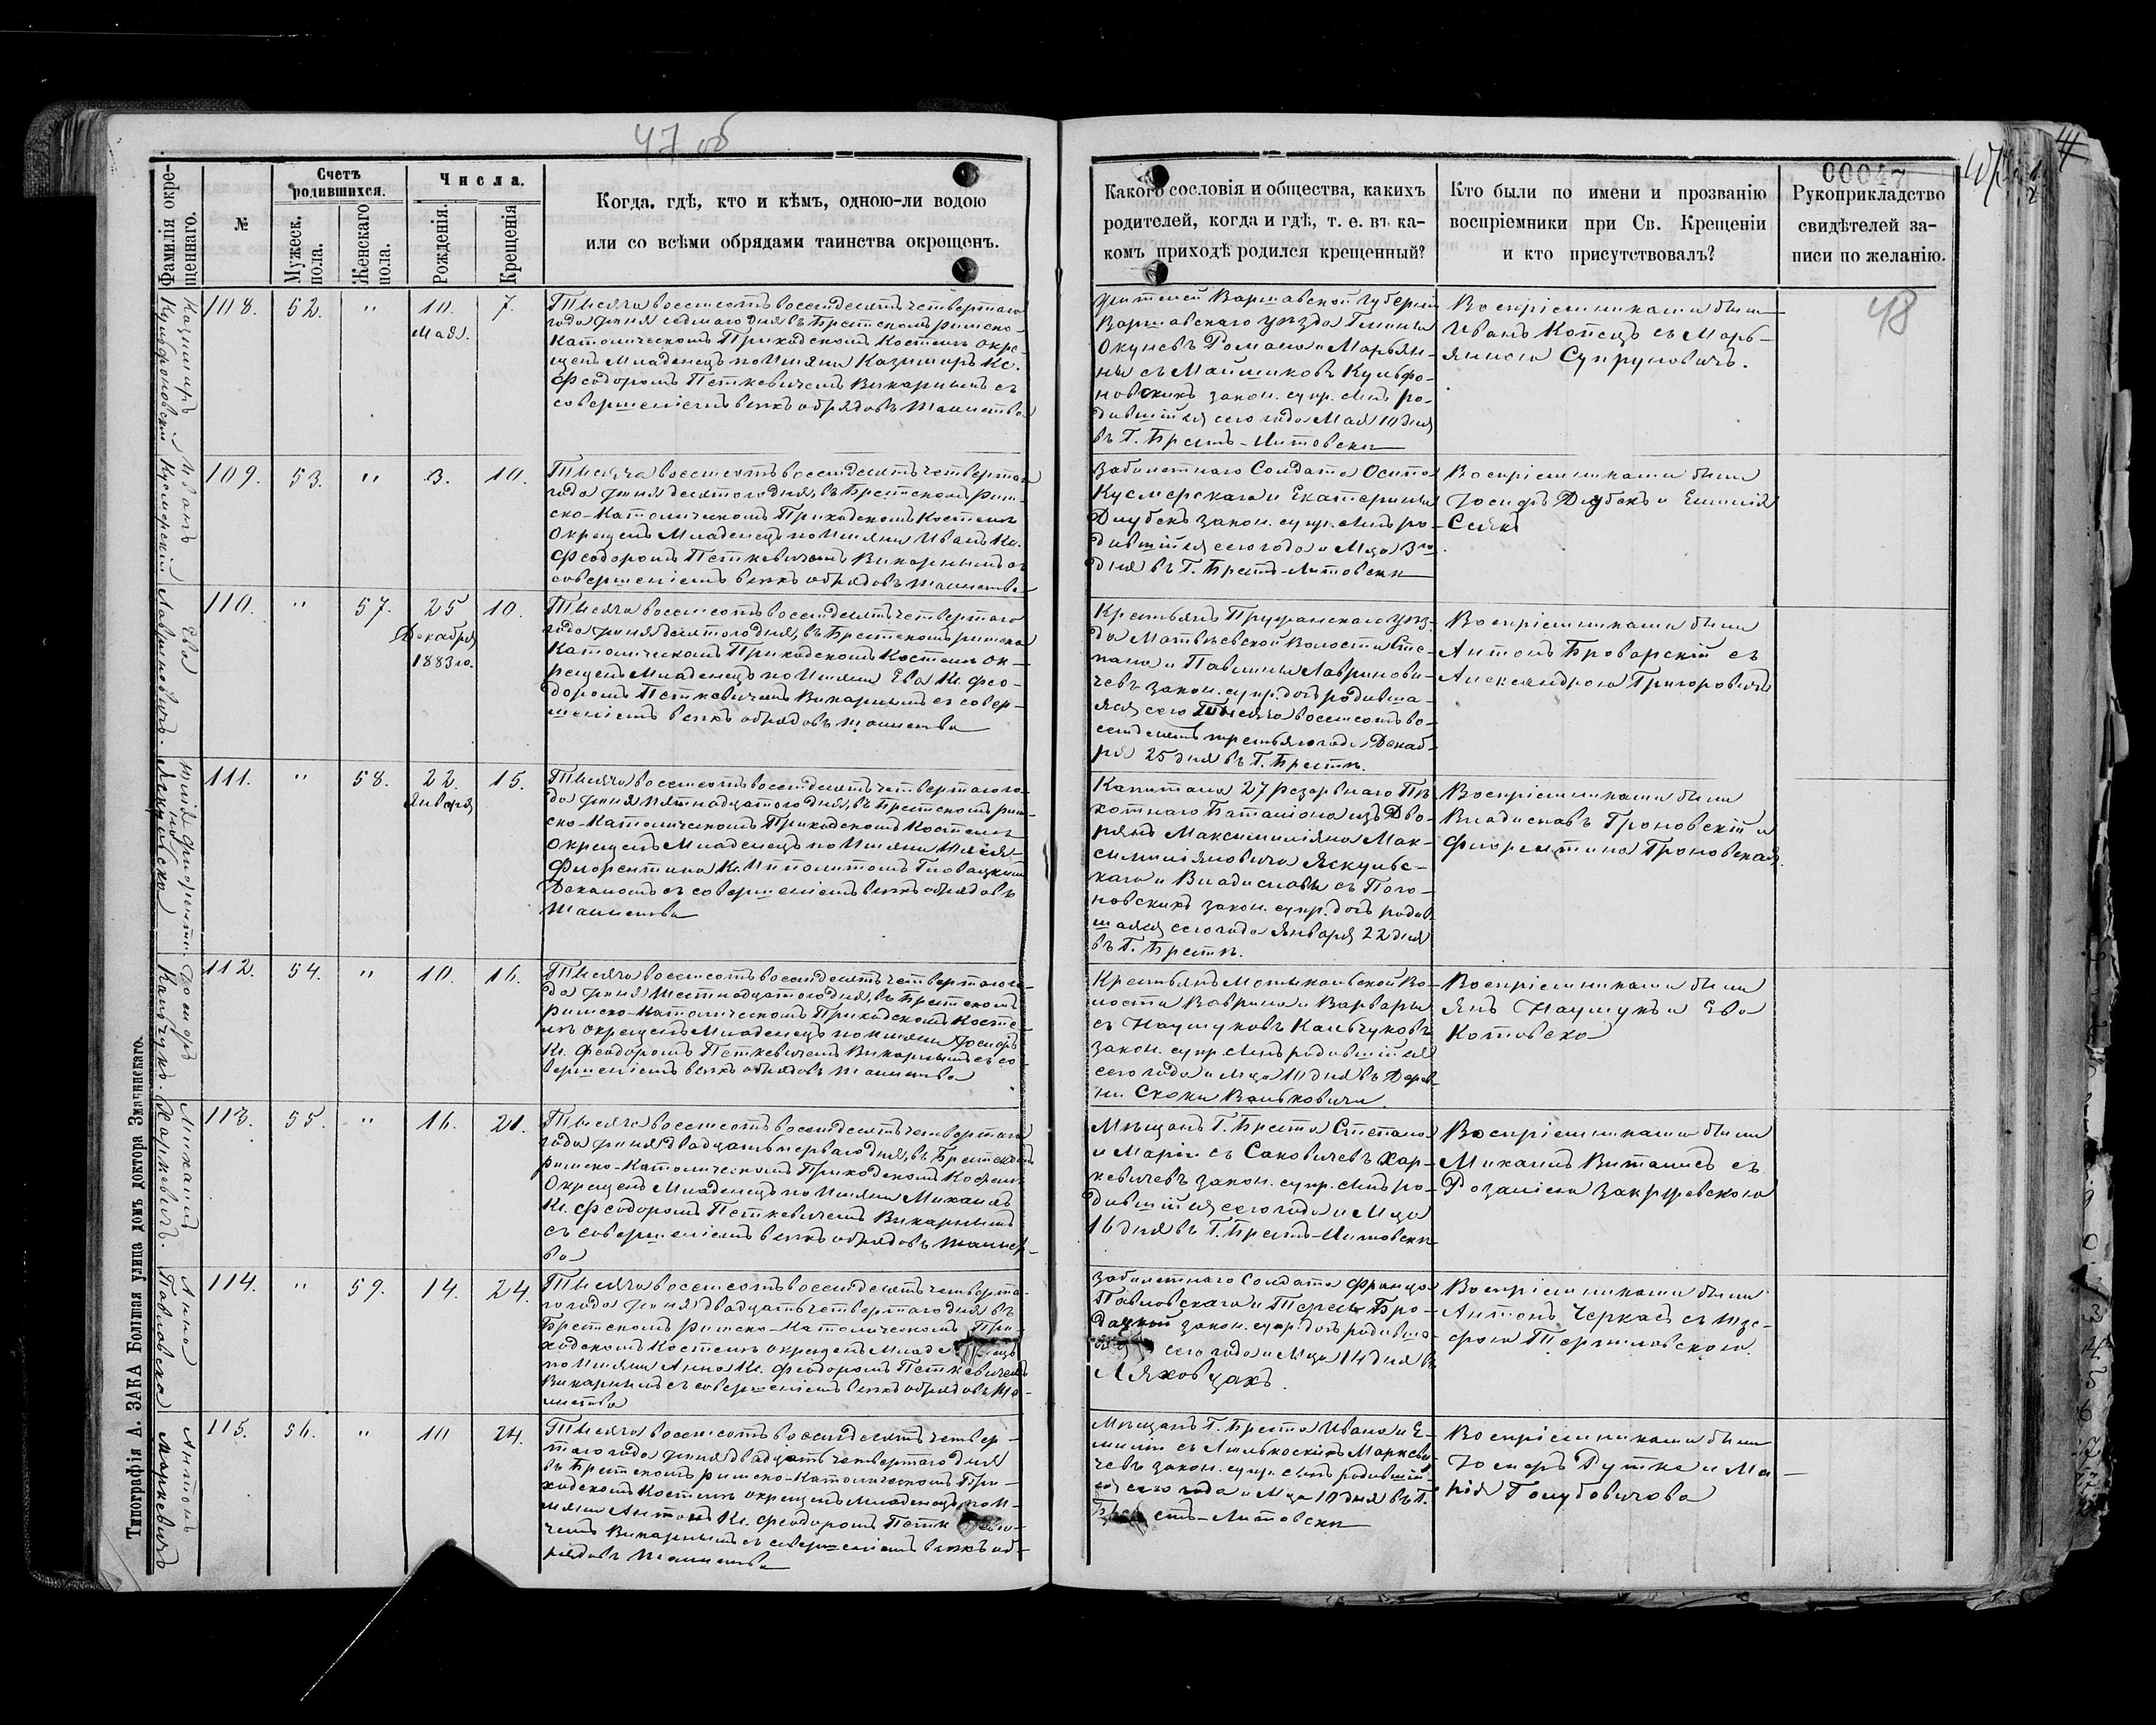 47 об
00047
48
Фамилія окрещеннаго.
№
Счетъ родившихся.
Мужеск. пола.
Женскаго пола.
Числа.
Рожденія.
Крещенія
Когда, гдѣ, кто и кѣмъ, одною-ли водою
или со всѣми обрядами таинства окрещенъ.
Какого сословія и общества, какихъ
родителей, когда и гдѣ, т. е. въ ка-
комъ приходѣ родился крещенный?
Кто были по имени и прозванію
воспріемники при Св. Крещеніи
и кто присутствовалъ?
Рукоприкладство
свидѣтелей за-
писи по желанію.
Казимиръ
108. 52. " 10. Мая. 7.
Тысяча восемсотъ восемдесятъ четвертаго
года Іюня седмаго дня въ Брестскомъ римско-
Католическомъ Приходскомъ Костелѣ окре-
щенъ Младенецъ по Имяни Казимиръ Кс.
Феодоромъ Петкевичемъ Викарнымъ съ
совершеніемъ всѣхъ обрядовъ таинства
Жителей Варшавской Губерніи
Варшавскаго уѣзда Гмины
Окуневъ Романа и Марьян-
ны съ
закон. супр. сынъ ро-
дившійся сего года Мая 10 дня
въ Г. Брестъ-Литовски
Воспріемниками были
Иванъ Копецъ съ Марь-
янною Супруновичъ.
Иванъ Кусмерскій
109. 53. " 3. 10.
Тысяча восемсотъ восемдесятъ четвертаго
года Іюня десятого дня, въ Брестскомъ рим-
ско-Католическомъ Приходскомъ Костелѣ
Окрещенъ Младенецъ по Имяни Иванъ Кс.
Феодоромъ Петкевичемъ Викарнымъ съ
совершеніемъ всѣхъ обрядовъ таинства
Забилетнаго Солдата Осипа
Кусмерскаго и Екатерины
Длубекъ закон. супр. сынъ ро-
дившійся сего года и Мца 3го
дня въ Г. Брестъ-Литовски
Воспріемниками были
Іосифъ Длубекъ и Емилія
Ева Лавриновичъ.
110. " 57. 25 Декабря 1883 го. 10.
Тысяча восемсотъ восемдесятъ четвертаго
года Іюня десятого дня, въ Брестскомъ римско
Католическомъ Приходскомъ Костелѣ ок-
рещенъ Младенецъ по Имяни Ева Кс. Фео-
доромъ Петкевичемъ Викарнымъ съ совер-
шеніемъ всѣхъ обрядовъ таинства
Крестьянъ Пружанскаго уѣз-
да Матвѣевской Волости Сте-
пана и Павлины Лавринови-
чевъ закон. супр. дочь родивша-
яся сего Тысяча восемсотъ во-
семдесятъ третьяго года Декаб-
ря 25 дня въ Г. Брестѣ.
Воспріемниками были
Антонъ Броварскій съ
Александрою Григоровичъ
111. " 58. 22. Января 15.
Тысяча восемсотъ восемдесятъ четвертаго го-
да Іюня пятнадцатого дня, въ Брестскомъ рим-
ско-Католическомъ Приходскомъ Костелѣ
Окрещенъ Младенецъ по Имяни
Флорентина Кс. Ипполитомъ Гловацкимъ
Деканомъ съ совершеніемъ всѣхъ обрядовъ
таинства
Капитана 27 резервнаго Пѣ-
хотнаго Баталіона изъ Дво-
рянъ Максимиліяна Мак-
симиліяновича Яскульс-
каго и Владиславы съ Пого-
новскихъ закон. супр. дочь родив-
шаяся сего года Января 22 дня
въ Г. Брестѣ.
Воспріемниками были
Владиславъ Гроновскій и
Флорентина Гроновская.
Іосифъ Кальчукъ.
112. 54. " 10. 16.
Тысяча восемсотъ восемдесятъ четвертаго го-
да Іюня Шестнадцатого дня, въ Брестскомъ
римско-Католическомъ Приходскомъ Косте-
лѣ окрещенъ Младенецъ по имяни Іосифъ
Кс. Феодоромъ Петкевичемъ Викарнымъ съ со-
вершеніемъ всѣхъ обрядовъ таинства
Крестьянъ Мотыкальской Во-
лости Ваврина и Варвары
съ Наумуковъ Кальчуковъ
закон. супр. сынъ родившійся
сего года и мца 10 дня въ Дерев-
ни Скоки Ваньковичи.
Воспріемниками были
Янъ Наумукъ и Ева
Котовска
Михаилъ Харкевичъ.
113. 55. " 16. 21.
Тысяча восемсотъ восемдесятъ четвертаго
года Іюня двадцать перваго дня, въ Брестскомъ
римско-Католическомъ Приходскомъ Костелѣ
Окрещенъ Младенецъ по Имяни Михаилъ
Кс. Феодоромъ Петкевичемъ Викарнымъ
съ совершеніемъ всѣхъ обрядовъ таинст-
ва
Мѣщанъ Г. Бреста Степана
и Маріи съ Саковичевъ Хар-
кевичевъ закон. супр. сынъ ро-
дившійся сего года и Мца
16 дня въ Г. Брестъ-Литовски
Воспріемниками были
Михаилъ Виталисъ съ
Розаліею Закржевскою
Анна Павловска
114. " 59. 14. 24.
Тысяча восемсотъ восемдесятъ четверта-
го года Іюня двадцать четвертаго дня въ
Брестскомъ римско-Католическомъ При-
ходскомъ Костелѣ окрещенъ Младенецъ
по Имяни Анна Кс. Феодоромъ Петкевичемъ
Викарнымъ съ совершеніемъ всѣхъ обрядовъ та-
инства
Забилетнаго Солдата Франца
Павловскаго и Тересы Бро-
закон. супр. дочь родивша-
сего года и Мца 14 дня въ
Ляховцахъ.
Воспріемниками были
Антонъ Черкасъ съ Юзе-
фою
Антонъ Маркевичъ
115. 56. " 10 24.
Тысяча восемсотъ восемдесятъ четвер-
таго года Іюня двадцать четвертаго дня
въ Брестскомъ римско-Католическомъ При-
ходскомъ Костелѣ окрещенъ Младенецъ по И-
мяни Антонъ Кс. Феодоромъ Петкеви-
чемъ Викарнымъ съ совершеніемъ всѣхъ об-
рядовъ таинства
Мѣщанъ Г. Бреста Ивана и Е-
миліи съ Маркеви-
чевъ закон. супр. сынъ родившій-
ся сего года и Мца 10 дня въ Г.
Брестъ-Литовски
Воспріемниками были
Іосифъ Дутка и Ма-
рія Голубовичова
Типографія А. ЗАКА Болшая улица домъ доктора Значинскаго.